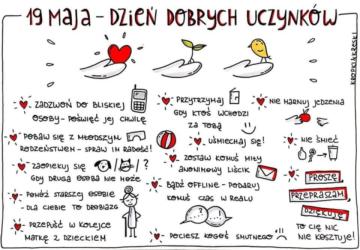 19 MAJA - DZIEŃ DOBRYCH UCZYNKÓW
KROPKI&KRESKI
ZADZWOŃ DO BLISKIEJ
OSOBY - POŚWIĘĆ JEJ CHWILĘ
POBAW SIĘ Z MŁODSZYM
RODZEŃSTWEM - SPRAW IM RADOŚĆ!
ZAOPIEKUJ SIĘ / /?
GDY DRUGA OSOBA NIE MOŻE
POMÓŻ STARSZEJ OSOBIE
DLA CIEBIE TO DROBIAZG
PRZEPUŚĆ W KOLEJCE
MATKĘ Z DZIECKIEM
PRZYTRZYMAJ
GDY KTOŚ WCHODZI
ZA TOBĄ
UŚMIECHAJ SIĘ!
ZOSTAW KOMUŚ MIŁY
ANONIMOWY LIŚCIK
BĄDŹ OFFLINE - PODARUJ
KOMUŚ CZAS W REALU
POCIESZ KOGOŚ SMUTNEGO
NIE MARNUJ JEDZENIA
NIE ŚMIEĆ
PROSZĘ
PRZEPRASZAM
DZIĘKUJĘ
TO CIĘ NIC
NIE KOSZTUJE!